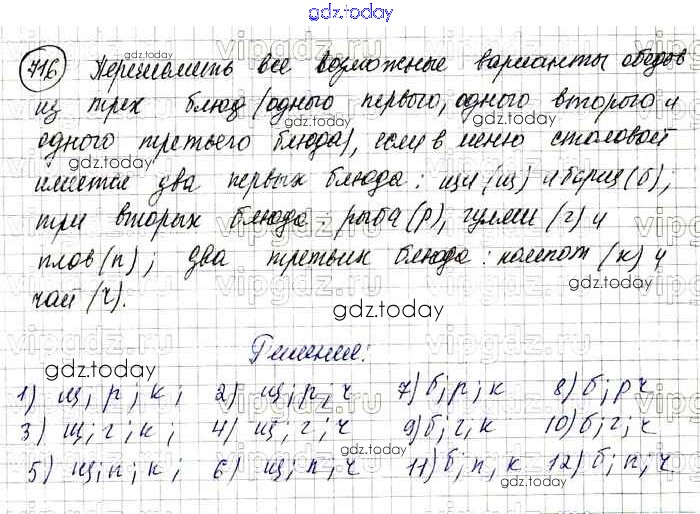 gdz.today
716 Перечислить все возможные варианты обедов
из трех блюд (одного первого, одного второго и
одного третьего блюда), если в меню столовой
имеется два первых блюда: щи (щ) и борщ (б);
три вторых блюда: рыба (р), гуляш (г) и
плов (п); два третьих блюда: компот (к) и
чай (ч).
gdz.today
Решение:
1) щ; р; к; 2) щ; р; ч 7) б; р; к 8) б; р ч
3) щ; г; к; 4) щ; г; ч 9) б; г, к 10) б; г; ч
5) щ; п; к; 6) щ; п; ч 11) б; п, к 12) б; п; ч
gdz.today
vipgdz.ru